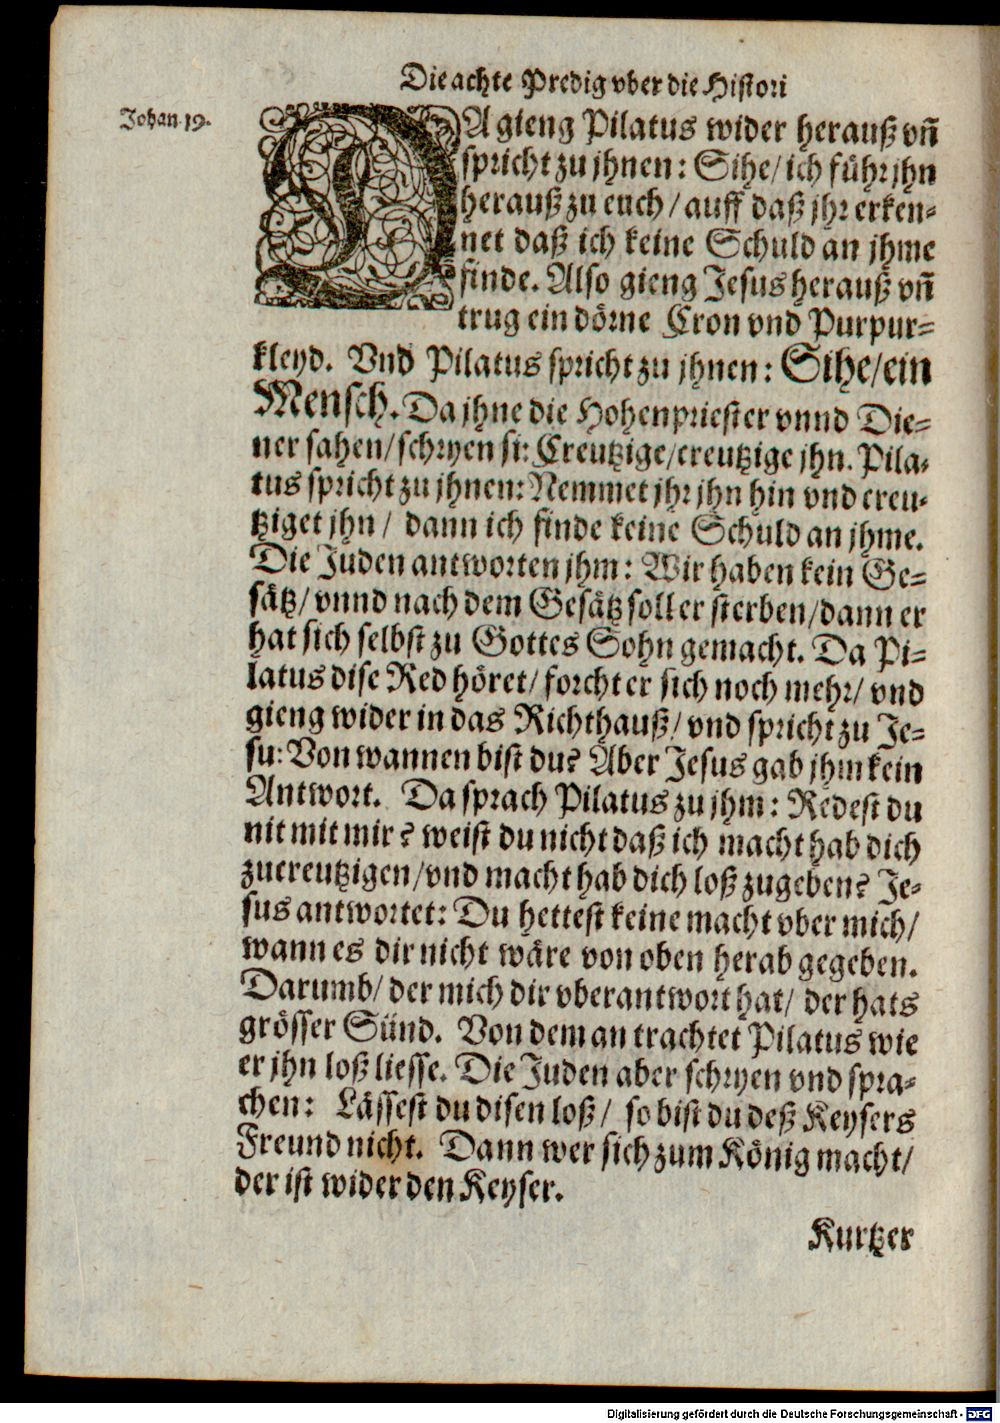 Die achte Predig vber die Histori
Johan 19.
DA gieng Pilatus wider herauß vñ
spricht zu jhnen: Sihe/ ich führ jhn
herauß zu euch/ auff daß jhr erken-
net daß ich keine Schuld an jhme
finde. Also gieng Jesus herauß vñ
trug ein dörne Cron vnd Purpur-
kleyd. Vnd Pilatus spricht zu jhnen: Sihe/ ein
Mensch. Da jhne die Hohenpriester vnnd Die-
ner sahen/ schryen si: Creutzige/ creutzige jhn. Pila-
tus spricht zu jhnen: Nemmet jhr jhn hin vnd creu-
tziget jhn/ dann ich finde keine Schuld an jhme.
Die Juden antworten jhm: Wir haben kein Ge-
sätz/ vnnd nach dem Gesätz soll er sterben/ dann er
hat sich selbst zu Gottes Sohn gemacht. Da Pi-
latus dise Red höret/ forcht er sich noch mehr/ vnd
gieng wider in das Richthauß/ vnd spricht zu Je-
su: Von wannen bist du? Aber Jesus gab jhm kein
Antwort. Da sprach Pilatus zu jhm: Redest du
nit mit mir? weist du nicht daß ich macht hab dich
zucreutzigen/ vnd macht hab dich loß zugeben? Je-
sus antwortet: Du hettest keine macht vber mich/
wann es dir nicht wäre von oben herab gegeben.
Darumb/ der mich dir vberantwort hat/ der hats
grösser Sünd. Von dem an trachtet Pilatus wie
er jhn loß liesse. Die Juden aber schryen vnd spra-
chen: Lässest du disen loß/ so bist du deß Keysers
Freund nicht. Dann wer sich zum König macht/
der ist wider den Keyser.
Kurtzer
Digitalisierung gefördert durch die Deutsche Forschungsgemeinschaft - DFG